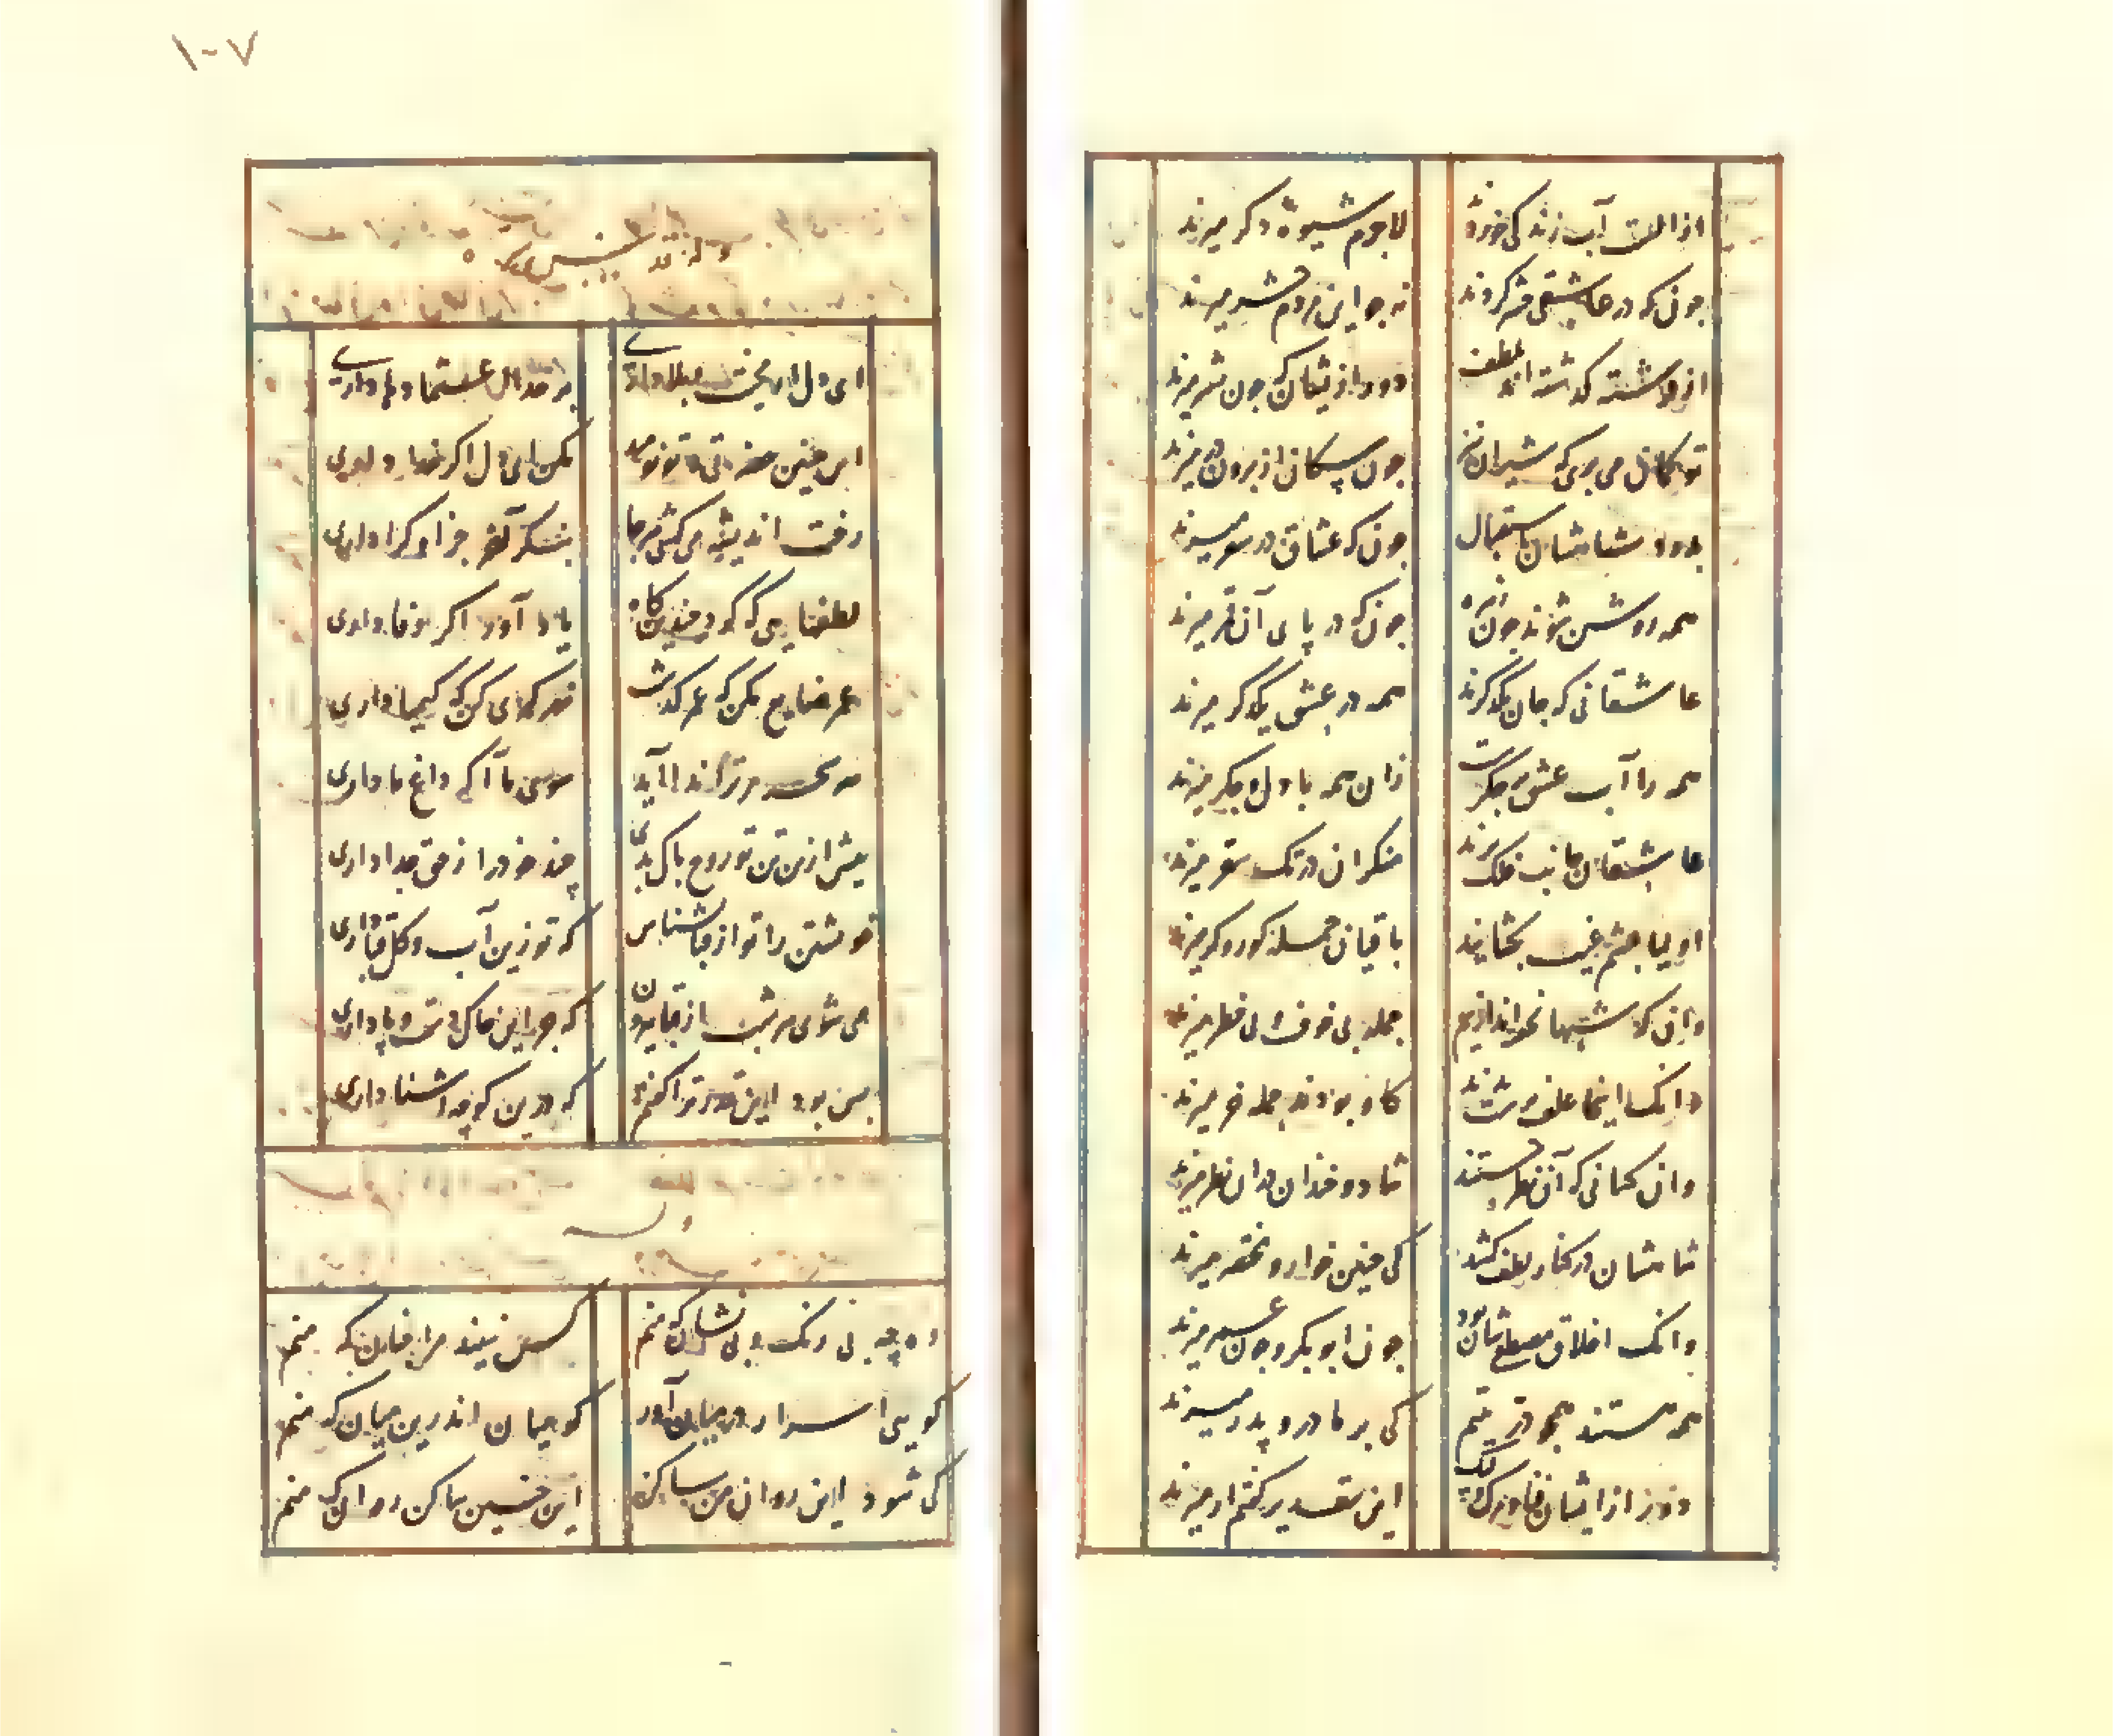 از الست آب زندگی خورده لاجرم شیوه دگر میرند
چون که در عاشقی حشر کردند نه چو این مردم حشر میرند
از فرشته گذشته اند بلطف دور ازیشان که چون بشر میرند
تو گمان می بری که شیران نیز چون سگان از برون در میرند
بدود شاه شان باستقبال چون که عشاق در سفر میرند
همه روشن شوند چون چون که در پای آن قمر میرند
عاشقانی که جان یکدگرند همه در عشق یکدگر میرند
همه را آب عشق بر جگرست زان همه با دل و جگر میرند
عاشقان جانب فلک پرند منکران در تک سقر میرند
اولیا چشم غیب بگشایند باقیان جمله کور و کر میرند
وان که شبها نخفته اند از بیم جمله بی خوف و بی خطر میرند
وانک اینجا علف پرست بدند گاو بودند جمله خر میرند
وان کسانی که آن نظر جستند شاد و خندان بدان نظر میرند
شاه شان در کنار لطف کشد کی چنین خوار و محتقر میرند
وانک اخلاق مصطفی شان بود چون ابوبکر و چون عمر میرند
همه هستند همچو در یتیم کی بر مادر و پدر میرند
دور از ایشان فنا و مرگ لیک این بتقدیر گفتم ار میرند
۱۰۷
وله قدس سره
ای دل از این چنین حضرتی و تو نومید مکن ای دل اگر خدا داری
رخت اندیشه می کشی هر جا بنگر آخر جز او کرا داری
لطفهایی که کرد چندین گاه یاد آور اگر وفا داری
عمر ضایع مکن که عمر گذشت زرگری کن که کیمیا داری
هر سحر مر ترا ندا آید سوی ما آ که داغ ما داری
پیش ازین تن تو روح پاک بدی چند خود را از حق جدا داری
خویشتن را تو از قبا بشناس که تو زین آب و گل قبا داری
می شوی هر شب از قبا بیرون که جز این خاک دست و پا داری
بس بود این قدر ترا گفتم که درین کوچه آشنا داری
وله
وه چه بی رنگ و بی نشان که منم کس نبیند مرا چنان که منم
گویی اسرار در میان آور کو میان اندرین میان که منم
کی شود این روان من ساکن این چنین ساکن روان که منم